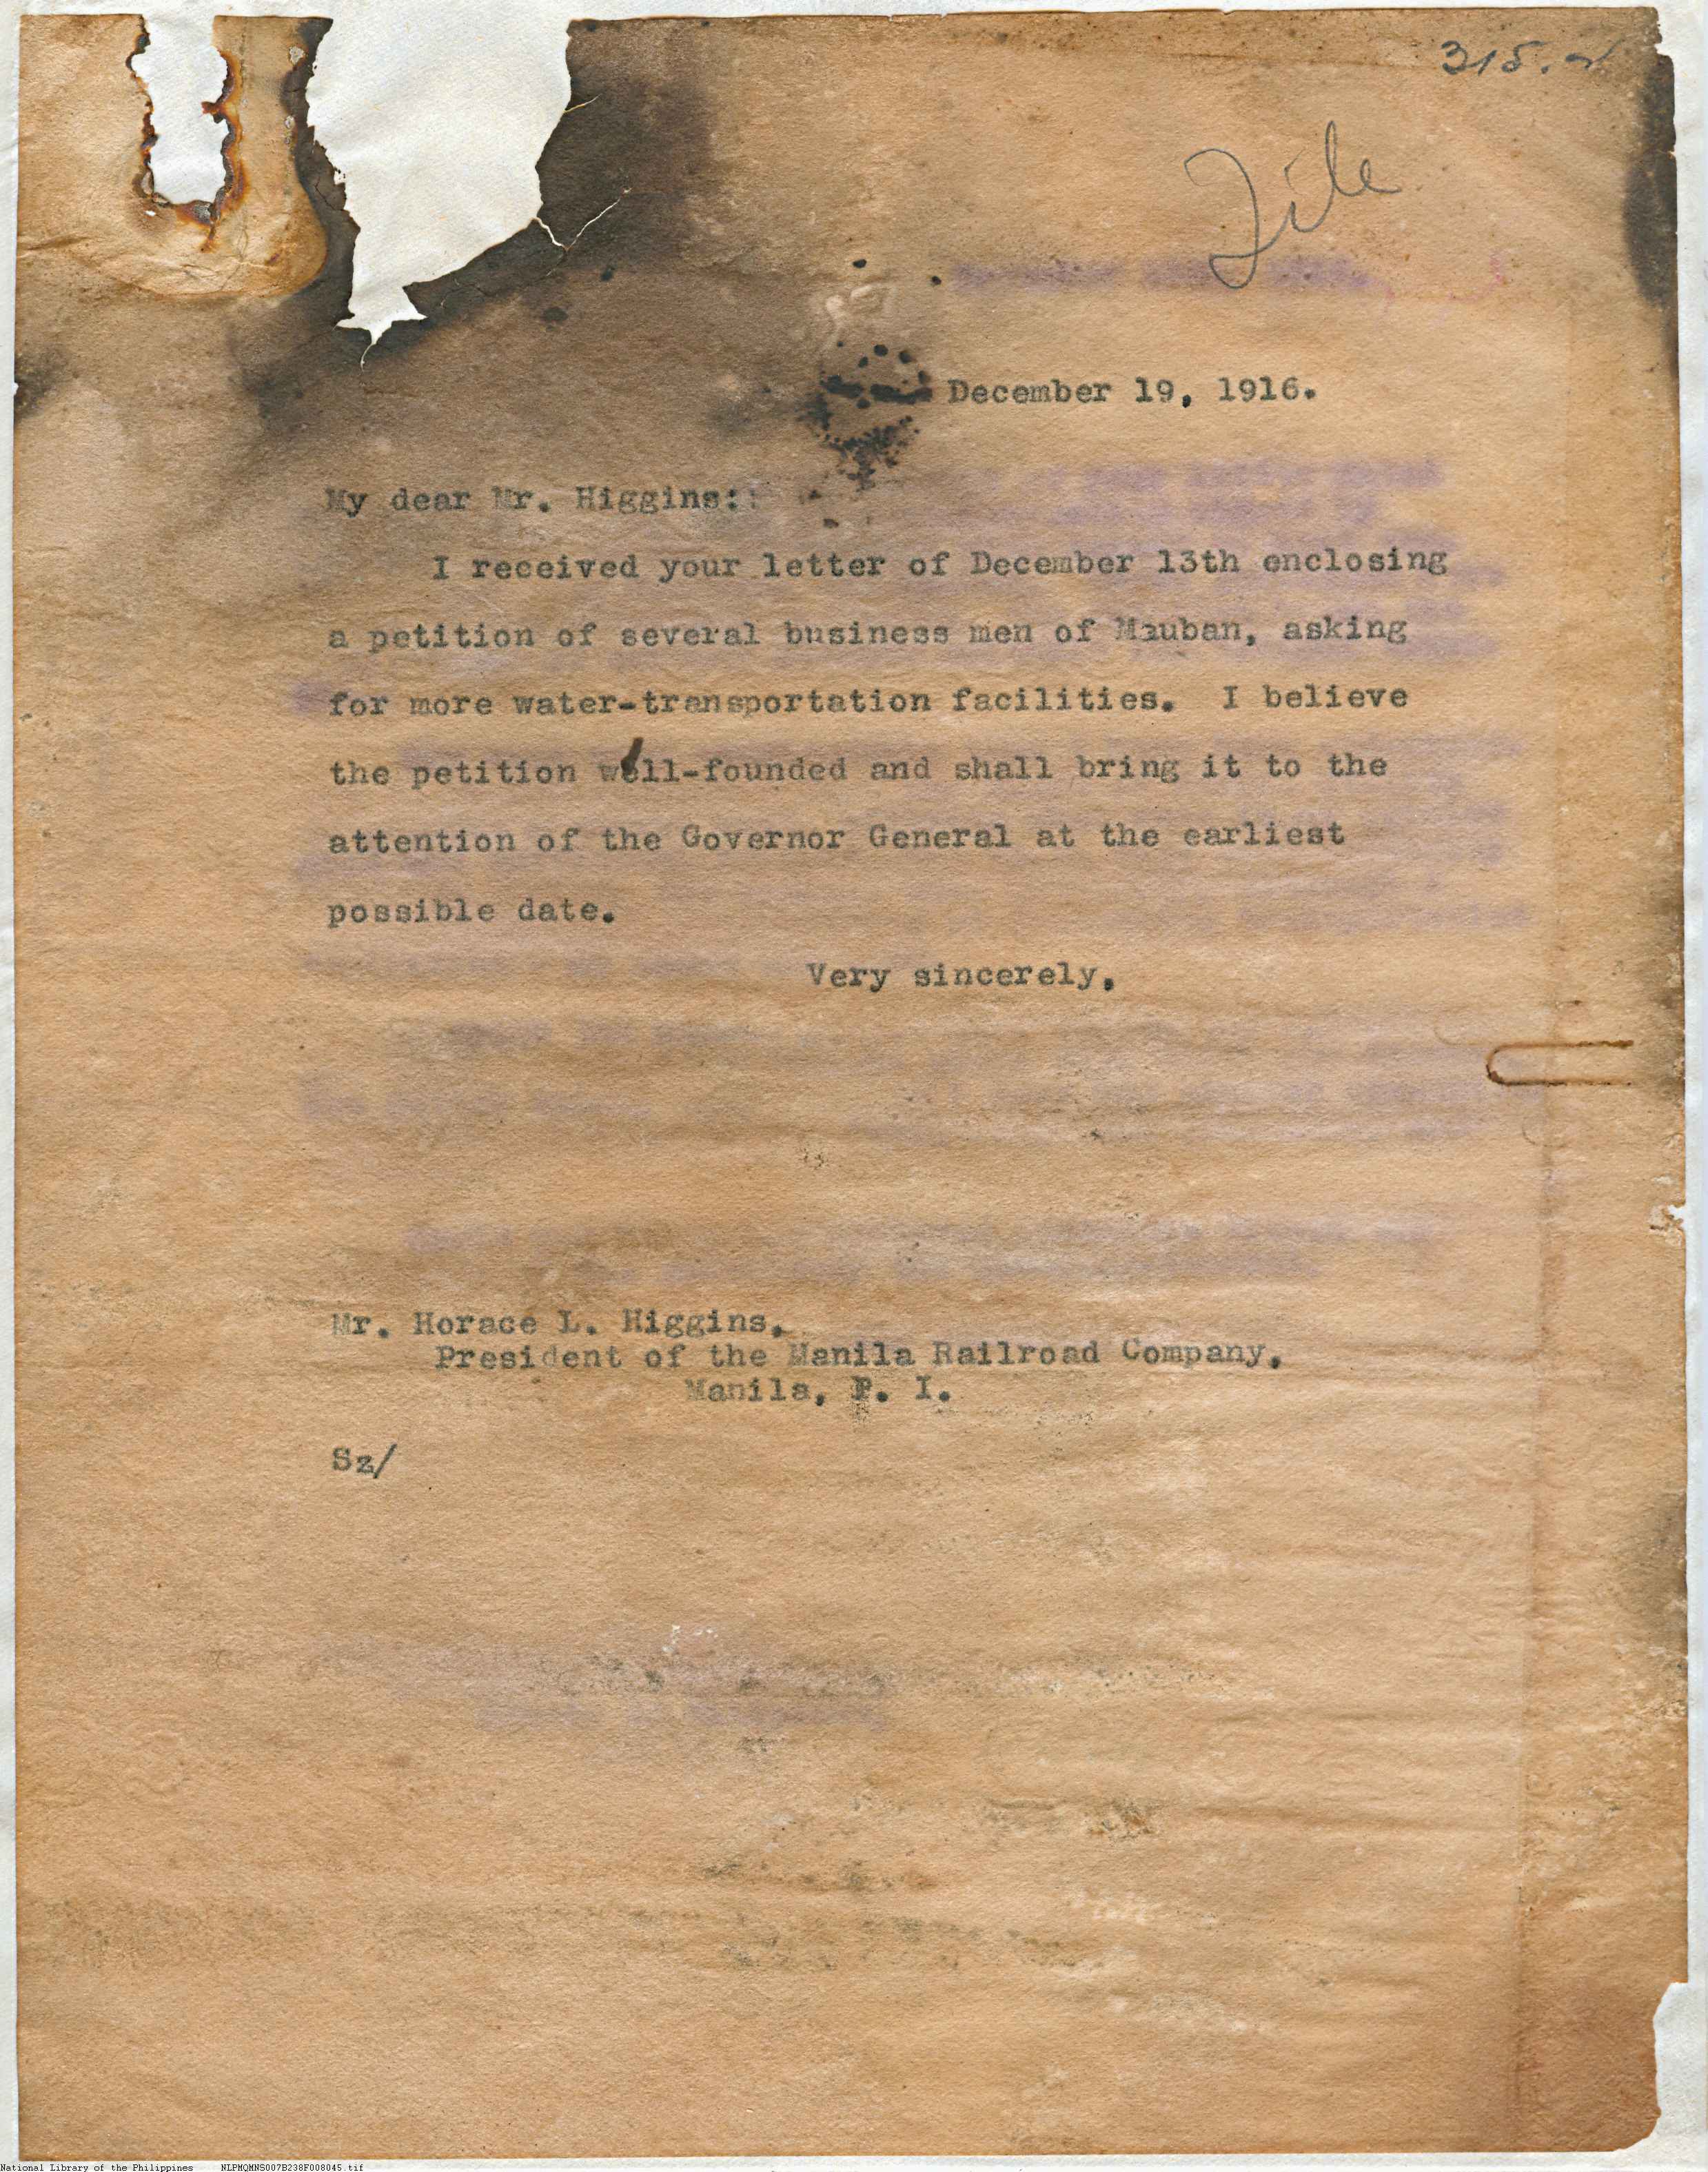 File
December 19, 1916.
My dear Mr. Higgins:
I received your letter of December 13th enclosing
a petition of several business men of Mauban, asking
for more water-transportation facilities. I believe
the petition well-founded and shall bring it to the
attention of the Governor General at the earliest
possible date.
Very sincerely,
Mr. Horace L. Higgins,
President of the Manila Railroad Company,
Manila, P. I.
Sz/
National Library of the Philippines NLPMQMNS007B238F008045.tif